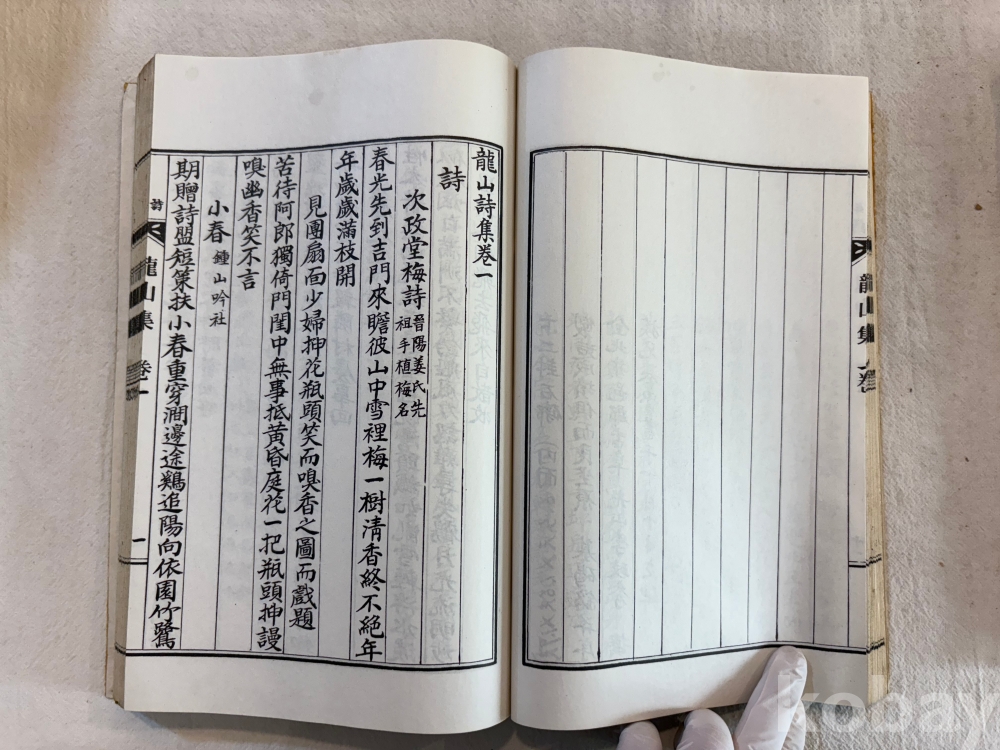 龍山詩集卷一
詩
次政堂梅詩 晉陽姜氏先祖手植梅名
春光先到吉門來瞻彼山中雪裡梅一樹淸香終不絕年
年歲歲滿枝開
見團扇面少婦抻花瓶頭笑而嗅香之圖而戲題
苦待阿郎獨倚門閨中無事抵黃昏庭花一把瓶頭抻謾
嗅幽香笑不言
小春 鍾山吟社
期贈詩盟短策扶小春重穿澗邊途鷄追陽向依園竹鷺
詩
龍山集
卷一
一
龍山集
kobay